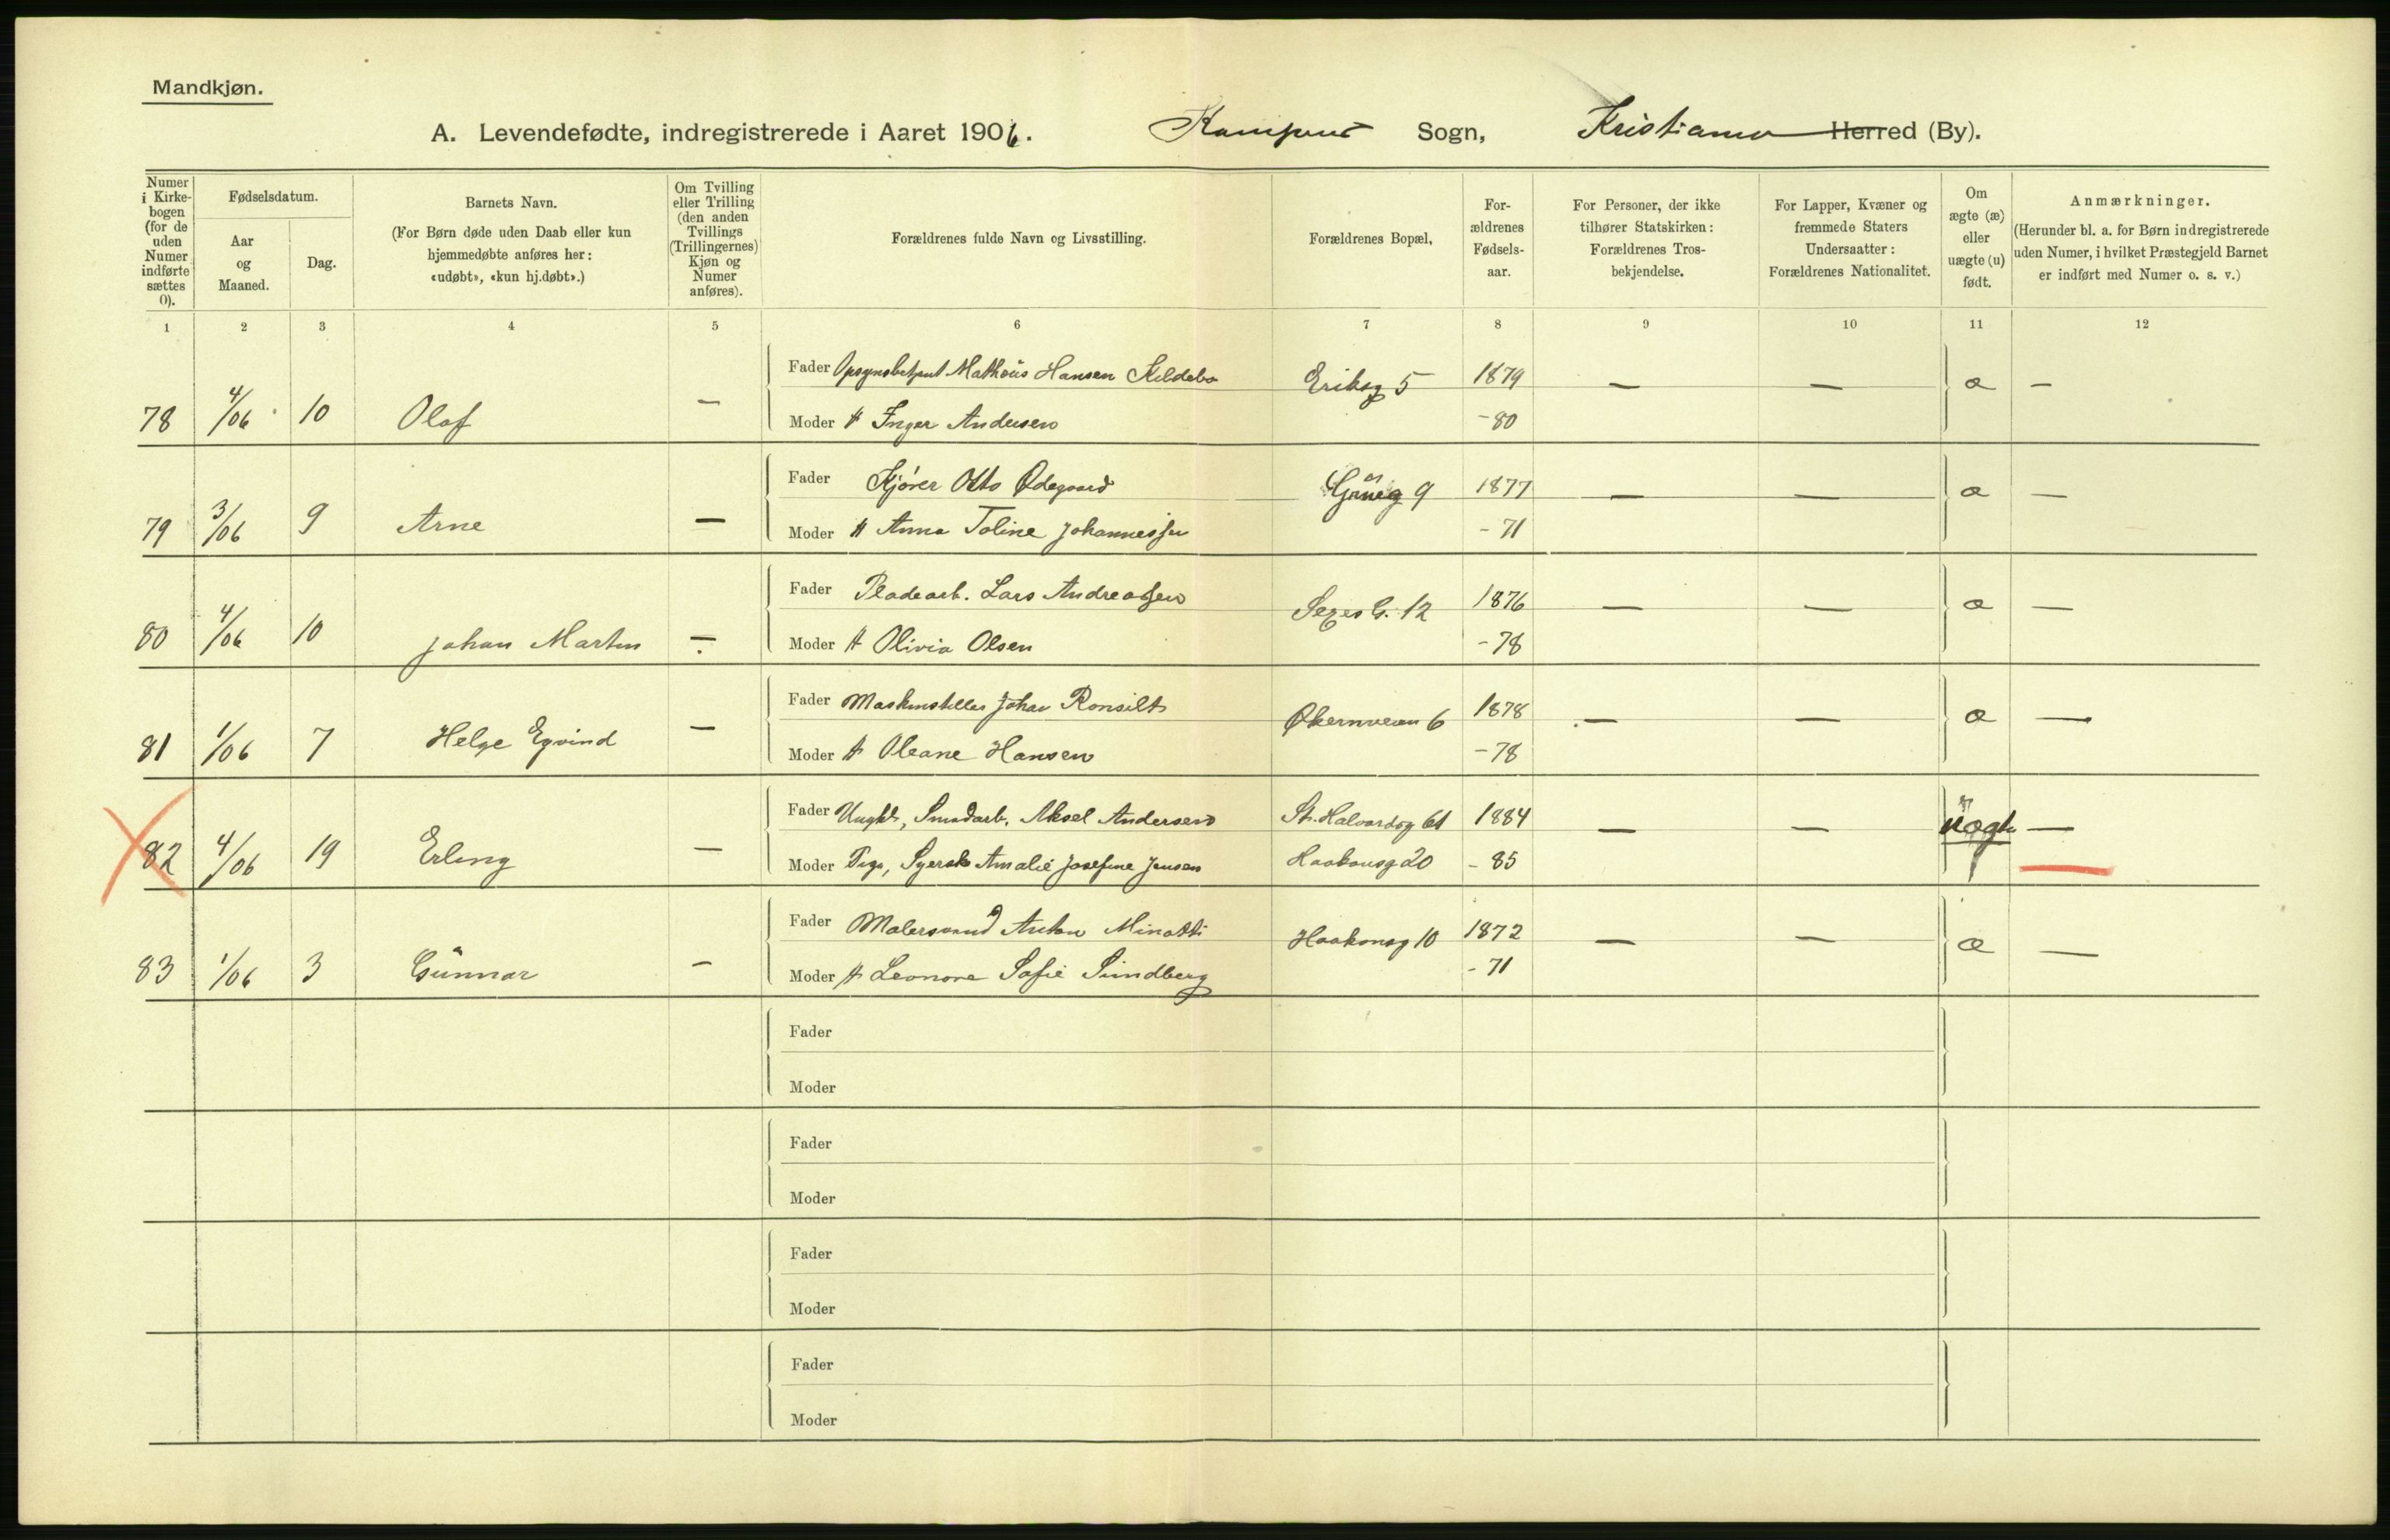 Mandkjøn.
A. Levendefødte, indregistrerede i Aaret 1906. Kampens Sogn, Kristiania Herred (By).
Numer i Kirke-bogen (for de uden Numer indførte sættes 0).
Fødselsdatum.
Aar og Maaned.
Dag.
Barnets Navn.
(For Børn døde uden Daab eller kun hjemmedøbte anføres her: «udøbt», «kun hj.døbt».)
Om Tvilling eller Trilling (den anden Tvillings (Trillingernes) Kjøn og Numer anføres).
Forældrenes fulde Navn og Livsstilling.
Forældrenes Bopæl,
For-ældrenes Fødsels-aar.
For Personer, der ikke tilhører Statskirken: Forældrenes Tros-bekjendelse.
For Lapper, Kvæner og fremmede Staters Undersaatter: Forældrenes Nationalitet.
Om ægte (æ) eller uægte (u) født.
Anmærkninger.
(Herunder bl. a. for Børn indregistrerede uden Numer, i hvilket Præstegjeld Barnet er indført med Numer o. s. v.)
1 2 3 4 5 6 7 8 9 10 11 12
78 4/06 10 Olaf — Fader Opsynsbetjent Mathæus Hansen Kildebo Eriksg 5 1879 — — æ —
Moder H Inger Andersen - 80
79 3/06 9 Arne — Fader Kjører Otto Ødegaard 9 1877 — — æ —
Moder H Anna Toline Johannessen - 71
80 4/06 10 Johan Martin — Fader Pladearb. Lars Andreassen 12 1876 — — æ —
Moder H Olivia Olsen - 78
81 1/06 7 Helge Eyvind — Fader Maskinstiller Johan Ronsilt Økernveien 6 1878 — — æ —
Moder H Oleane Hansen - 78
82 4/06 19 Erling — Fader Ungkl, Smedarb. Aksel Andersen St. Halvardsg 61 1884 — — uægte —
Moder Pige, Syerske Amalie Josefine Jensen Haakonsg 20 - 85
83 1/06 3 Gunnar — Fader Malersvend Anton Minotti Haakonsg 10 1872 — — æ —
Moder H Leonora Sofie Sundberg - 71
Fader
Moder
Fader
Moder
Fader
Moder
Fader
Moder